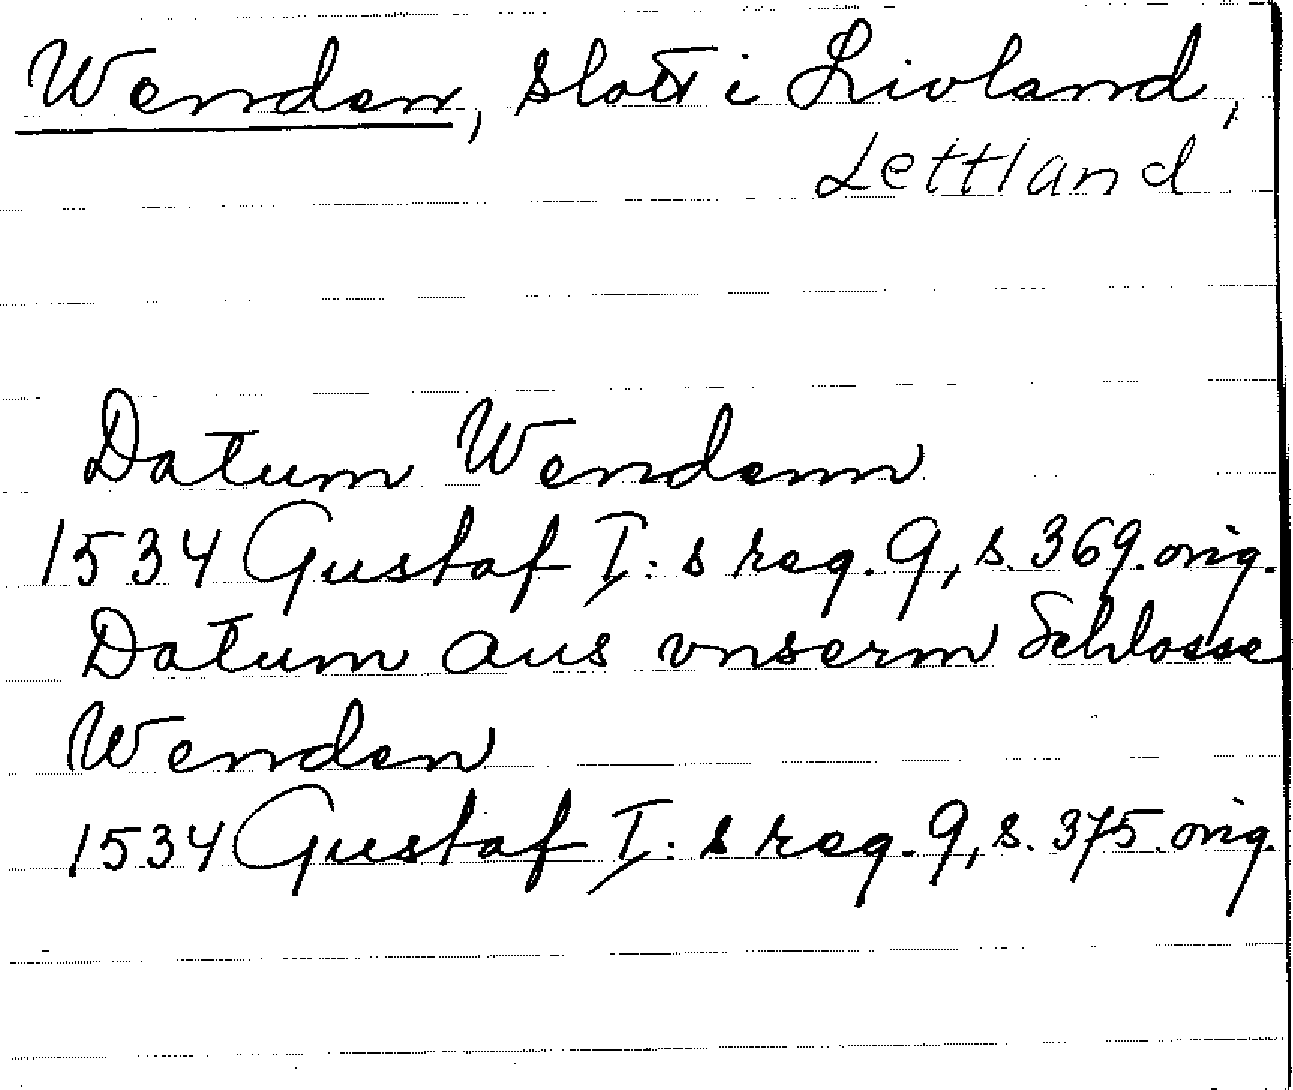 Wenden, slott i Livland,
Lettland
Datum Wendenn
1534 Gustaf I:s reg. 9, s. 369. orig.
Datum aus vnserm Schlosse
Wenden
1534 Gustaf I:s reg. 9, s. 375. orig.